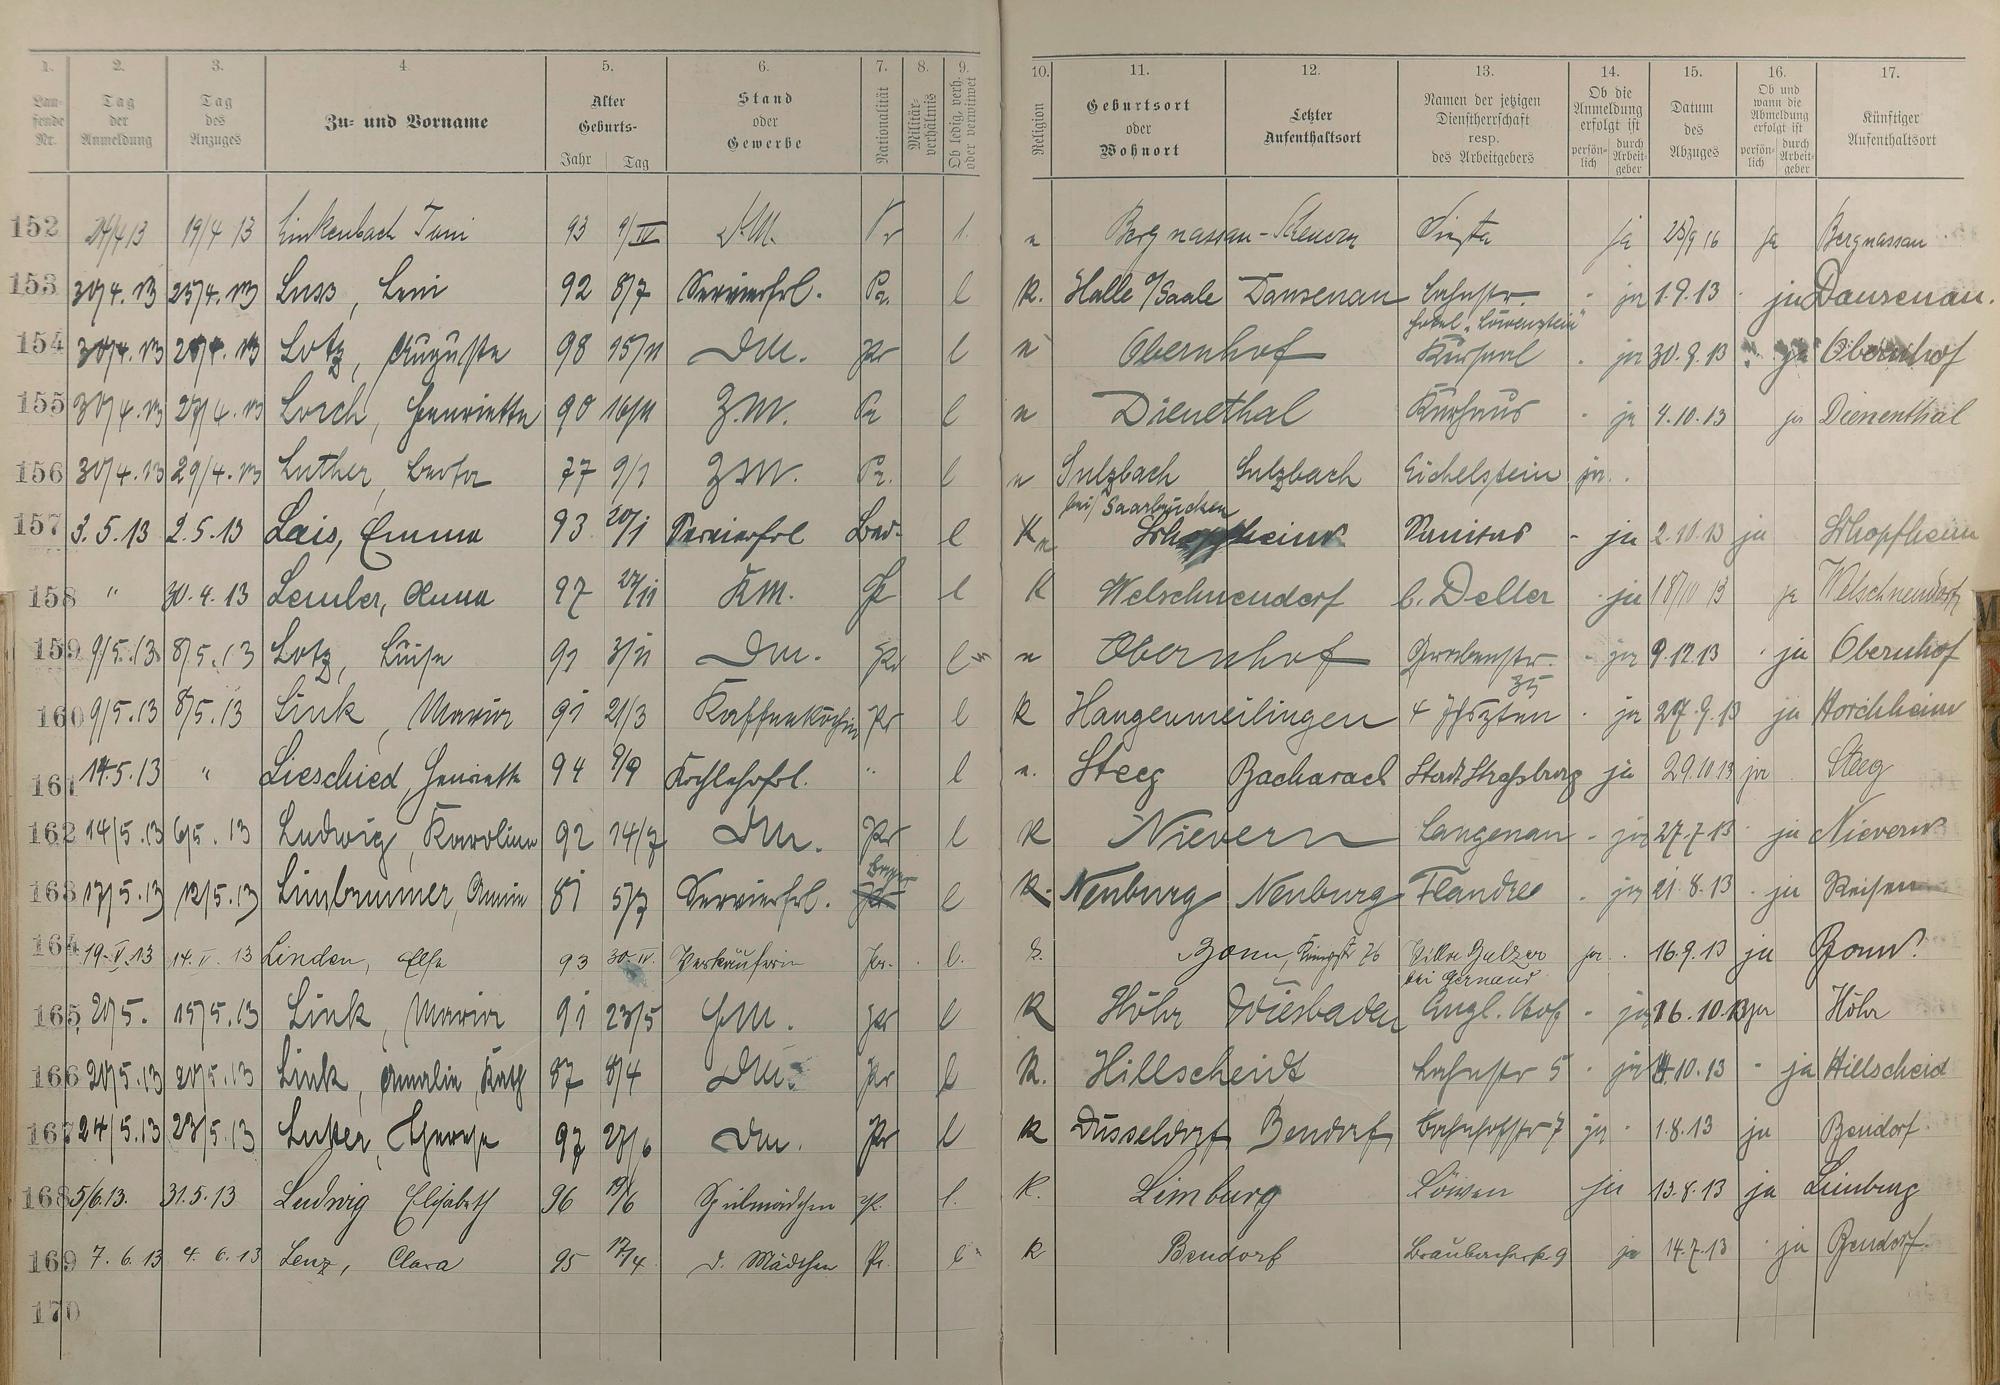 1. 2. 3. 4. 5. 6. 7. 8. 9. 10. 11. 12. 13. 14. 15. 16. 17.
Laufende Nr.
Tag der Anmeldung
Tag des Anzuges
Zu- und Vorname
Alter Geburts- Jahr Tag
Stand oder Gewerbe
Nationalität
Militärverhältnis
Ob ledig, verh. oder verwitwet
Religion
Geburtsort oder Wohnort
Letzter Aufenthaltsort
Namen der jetzigen Dienstherrschaft resp. des Arbeitgebers
Ob die Anmeldung erfolgt ist persönlich durch Arbeitgeber
Datum des Abzuges
Ob und wann die Abmeldung erfolgt ist persönlich durch Arbeitgeber
Künftiger Aufenthaltsort
152 24/4 13 19/4 13 Linkenbach Toni 93 9/IV Pr l. Bergnassau-Scheuern ja 25/9 16 ja Bergnassau
153 30/4. 13 25/4. 13 Luss, Leni 92 8/7 Servierfrl. Pr. l K. Halle a/Saale Dausenau Lahnstr. ja 1.9.13 ja Dausenau.
Hotel "Löwenstein"
154 30/4. 13 Lotz, Auguste 98 15/11 DM. Pr l Obernhof Kursaal ja 30.9.13 ja Obernhof
155 30/4. 13 27/4. 13 Lorch, Henriette 90 16/11 Z.M. Pr l Dienethal Kurhaus ja 4.10.13 ja Dienenthal
156 30/4. 13 29/4. 13 Luther, Berta 77 9/1 ZM. Pr. l Sulzbach Sulzbach Eichelstein ja.
bei Saarbrücken
157 3.5.13 2.5.13 Lais, Emma 93 20/1 Servierfrl Bad. l Schopfheim Sanitas - ja 2.10.13 ja Schopfheim
158 " 30.4.13 Lember, Anna 97 27/11 KM. Pr l K Welschneudorf b. Deller ja 18/11 13 ja Welschneudorf
159 9/5.13 8/5.13 Lotz, Luise 91 3/11 DM. Pr l Obernhof Grabenstr. ja 9.12.13 ja Obernhof
35
160 9/5.13 8/5.13 Link, Maria 91 21/3 Kaffeeköchin Pr l K Hangenmeilingen ja 27.9.13 ja Horchheim
161 14.5.13 " Lieschied, Henriette 94 9/9 Kochlehrfrl. " l Steeg Bacharach Stadt Straßburg ja 29.10.13 ja Steeg
162 14/5.13 6/5.13 Ludwig, Karoline 92 14/7 DM. Pr l K Nievern Langenau - ja 27.7.13 ja Nievern
163 17/5.13 12/5.13 Limbrunner, 81 5/7 Servierfrl. Bayer l K. Neuburg Neuburg Flandre ja 21.8.13 ja Reisen
164 19.V.13 14.V.13 Linden, Else 93 30.IV. Verkäuferin Pr. l. Bonn, 76 Villa Balzer ja. 16.9.13 ja Bonn.
bei Gernand
165 20/5. 15/5.13 Link, Maria 91 23/5 HM. Pr l K Höhr Wiesbaden Engl. Hof - ja 16.10.13 ja Höhr
166 20/5.13 20/5.13 Link, Kath 87 8/4 DM. Pr l K. Hillscheidt Lahnstr 5 - ja 10.13 - ja Hillscheid
167 24/5.13 23/5.13 97 27/6 DM. Pr l K Düsseldorf Bendorf Bahnhofstr 7 ja - 1.8.13 ja Bendorf
168 5/6.13. 31.5.13 Ludwig Elisabeth 96 19/6 Spülmädchen Pr. l. K. Limburg Löwen ja 13.8.13 ja Limburg
169 7.6.13 4.6.13 Lenz, Clara 95 17/4 d. Mädchen Pr. l K Bendorf Braubacherstr. 9 ja 14.7.13 ja Bendorf.
170